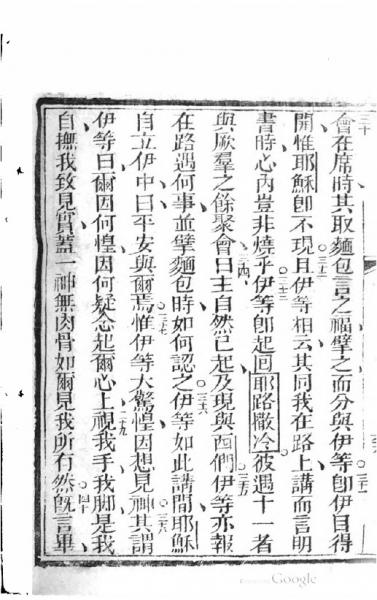 三十會在席時其取麵包言之福擘之而分與伊等三一卽伊目得
開惟耶穌卽不現三二且伊等相云其同我在路上講而言明
書時心內豈非燒乎三三伊等卽起回耶路撒冷彼遇十一者
與厥羣之餘聚會三四曰主自然已起及現與西們三五伊等亦報
在路遇何事並擘麵包時如何認之三六伊等如此講間耶穌
自立伊中曰平安與爾焉三七惟伊等大驚惶因想見神三八其謂
伊等曰爾因何惶因何疑念起爾心上三九視我手我脚是我
自撫我致見實蓋一神無肉骨如爾見我所有然四十旣言畢
Google